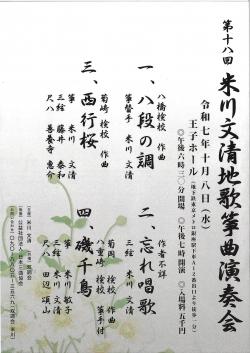 第十八回 米川文清地歌箏曲演奏会
令和七年十月八日（水）
王子ホール
◎午後六時三〇分開場 ◎午後七時開演 ◎入場料五千円
一、八段の調
八橋検校 作曲
箏替手 米川 文清
二、忘れ唱歌
作者不詳
三絃 米川 文清
三、西行桜
菊崎検校 作曲
箏 米川 文清
三絃 藤井 泰和
尺八 善養寺 惠介
四、磯千鳥
菊岡検校 作曲
八重崎検校 箏手付
箏 米川 敏子
三絃 米川 文清
尺八 田辺 頌山